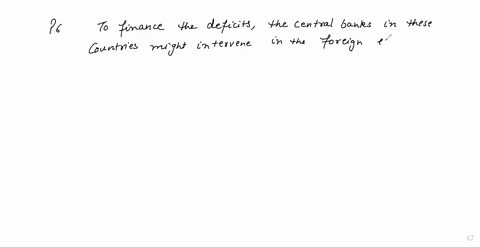 P6 To finance the deficits, the central banks in these
Countries might intervene in the foreign e